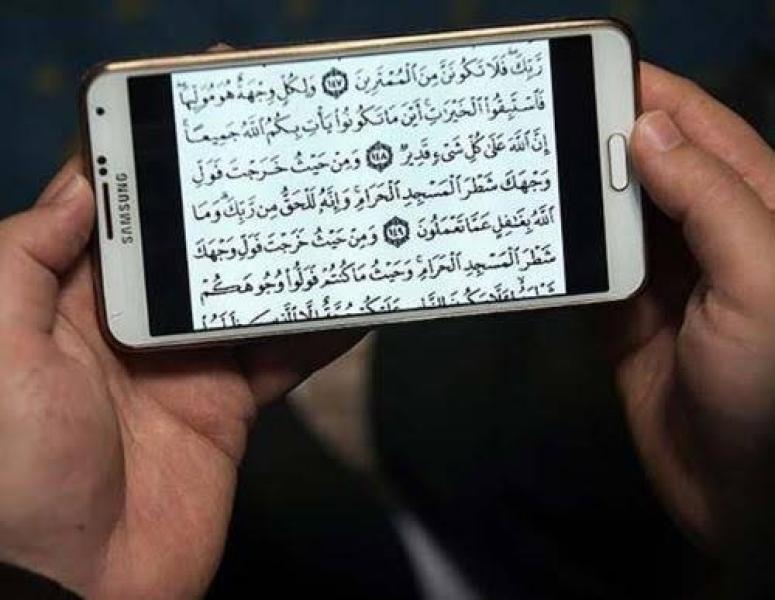 رَّبِّكَ فَلَا تَكُونَنَّ مِنَ ٱلْمُمْتَرِينَ ١٤٧ وَلِكُلٍّ وِجْهَةٌ هُوَ مُوَلِّيهَا
فَٱسْتَبِقُوا۟ ٱلْخَيْرَٰتِ أَيْنَ مَا تَكُونُوا۟ يَأْتِ بِكُمُ ٱللَّهُ جَمِيعًا
إِنَّ ٱللَّهَ عَلَىٰ كُلِّ شَىْءٍ قَدِيرٌ ١٤٨ وَمِنْ حَيْثُ خَرَجْتَ فَوَلِّ
وَجْهَكَ شَطْرَ ٱلْمَسْجِدِ ٱلْحَرَامِ وَإِنَّهُۥ لَلْحَقُّ مِن رَّبِّكَ وَمَا
ٱللَّهُ بِغَٰفِلٍ عَمَّا تَعْمَلُونَ ١٤٩ وَمِنْ حَيْثُ خَرَجْتَ فَوَلِّ وَجْهَكَ
شَطْرَ ٱلْمَسْجِدِ ٱلْحَرَامِ وَحَيْثُ مَا كُنتُمْ فَوَلُّوا۟ وُجُوهَكُمْ
SAMSUNG